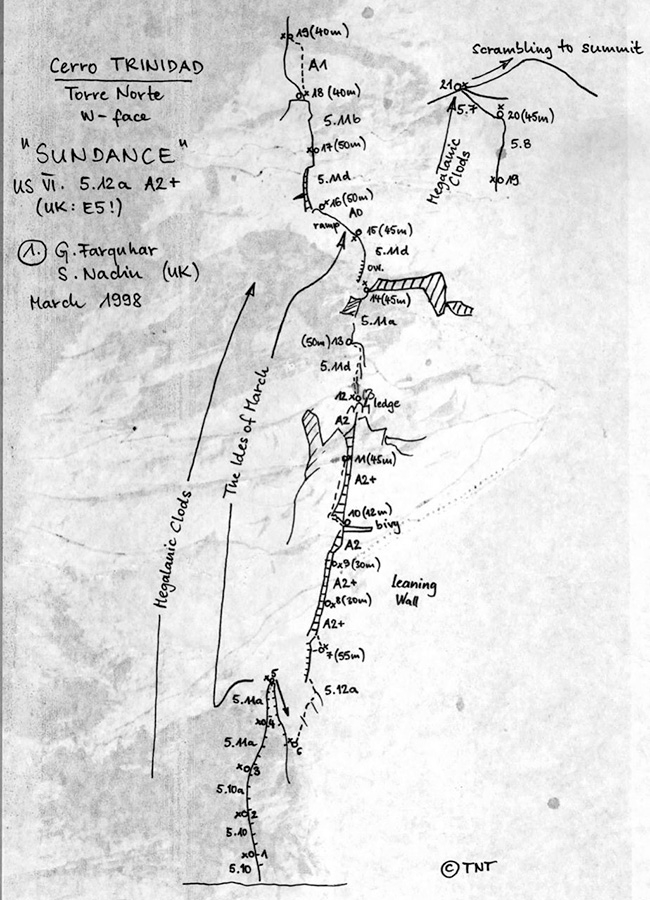 Cerro TRINIDAD
Torre Norte
W-face
"SUNDANCE"
US VI. 5.12a A2+
(UK: E5!)
1. G. Farquhar
S. Nadin (UK)
March 1998
19(40m)
A1
18(40m)
5.11b
17(50m)
5.11d
16(50m)
A0
ramp
15(45m)
5.11d
ow.
14(45m)
5.11a
(50m)13
5.11d
12
ledge
A2
11(45m)
A2+
10(12m)
bivy
A2
9(30m)
A2+
8(30m)
A2+
7(55m)
5.12a
5
5.11a
4
6
5.11a
3
5.10a
2
5.10
1
5.10
Leaning
Wall
The Ides of March
Megalanic Clods
scrambling to summit
21
5.7
20(45m)
5.8
19
Megalanic
Clods
© TNT